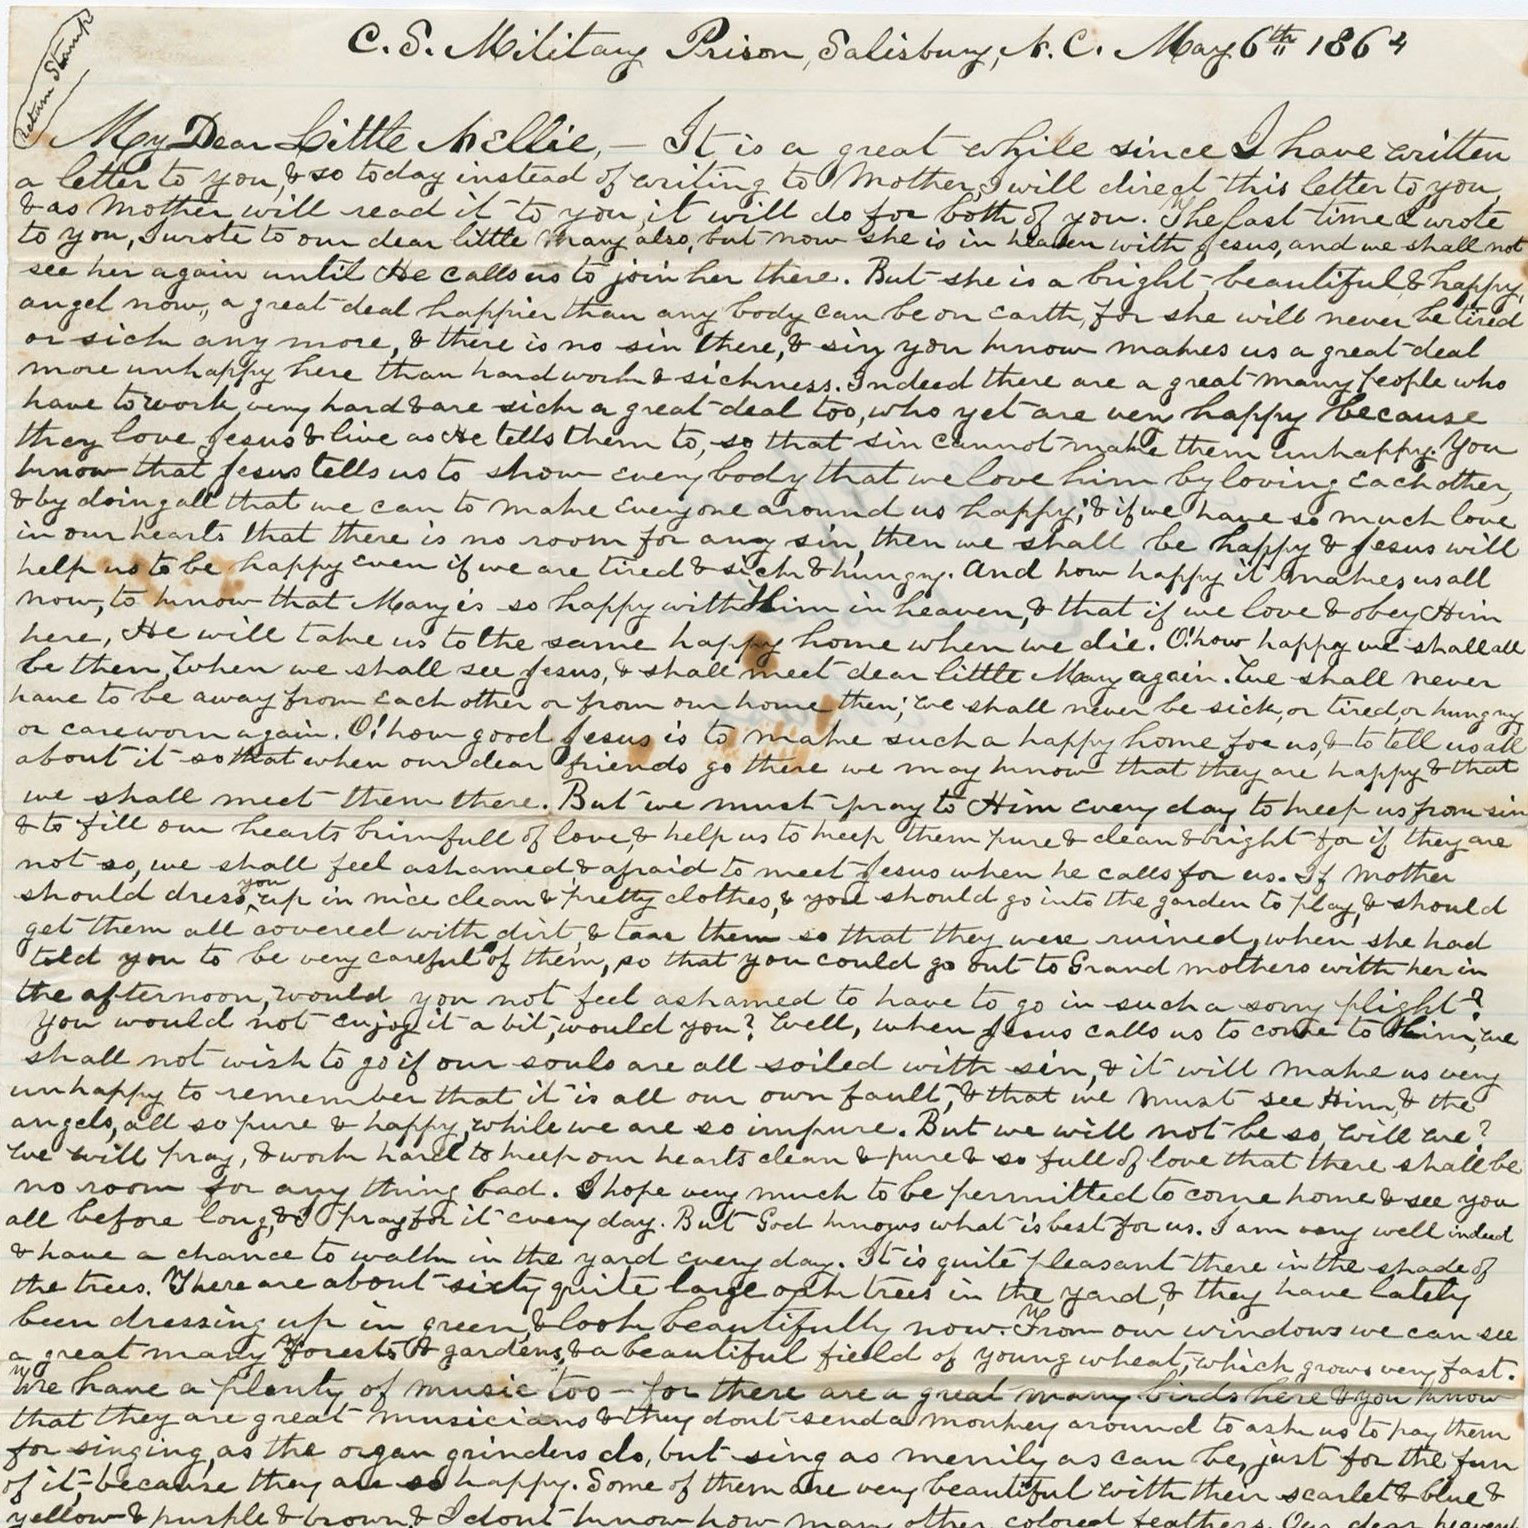 return stamp
C. S. Military Prison, Salisbury, N. C. May 6th 1864
My Dear Little Nellie, — It is a great while since I have written
a letter to you, & so today instead of writing to Mother, I will direct this letter to you,
& as Mother will read it to you, it will do for both of you. The last time I wrote
to you, I wrote to our dear little Mary also, but now she is in heaven with Jesus, and we shall not
see her again until He calls us to join her there. But she is a bright, beautiful & happy,
angel now, a great deal happier than any body can be on earth, for she will never be tired
or sick any more, & there is no sin there, & sin you know makes us a great deal
more unhappy here than hard work & sickness. Indeed there are a great many people who
have to work very hard & are sick a great deal too, who yet are very happy because
they love Jesus & live as He tells them to, so that sin cannot make them unhappy. You
know that Jesus tells us to show every body that we love him by loving each other,
& by doing all that we can to make every one around us happy; & if we have so much love
in our hearts that there is no room for any sin, then we shall be happy & Jesus will
help us to be happy even if we are tired & sick & hungry. And how happy it makes us all
now, to know that Mary is so happy with Him in heaven, & that if we love & obey Him
here, He will take us to the same happy home when we die. O! how happy we shall all
be then, when we shall see Jesus, & shall meet dear little Mary again. We shall never
have to be away from each other or from our home then; we shall never be sick, or tired, or hungry
or careworn again. O! how good Jesus is to make such a happy home for us, & to tell us all
about it so that when our dear friends go there we may know that they are happy & that
we shall meet them there. But we must pray to Him every day to keep us from sin
& to fill our hearts brimfull of love, & help us to keep them pure & clean & bright for if they are
not so, we shall feel ashamed & afraid to meet Jesus when he calls for us. If Mother
should dress you up in nice clean & pretty clothes, & you should go into the garden to play, & should
get them all covered with dirt, & tear them so that they were ruined, when she had
told you to be very careful of them, so that you could go out to Grand mothers with her in
the afternoon, would you not feel ashamed to have to go in such a sorry plight?
You would not enjoy it a bit, would you? Well, when Jesus calls us to come to Him, we
shall not wish to go if our souls are all soiled with sin, & it will make us very
unhappy to remember that it is all our own fault, & that we must see Him, & the
angels, all so pure & happy, while we are so impure. But we will not be so, will we?
We will pray, & work hard to keep our hearts clean & pure & so full of love that there shall be
no room for any thing bad. I hope very much to be permitted to come home & see you
all before long, & I pray for it every day. But God knows what is best for us. I am very well indeed
& have a chance to walk in the yard every day. It is quite pleasant there in the shade of
the trees. There are about sixty quite large oak trees in the yard, & they have lately
been dressing up in green, & look beautifully now. From our windows we can see
a great many forests & gardens, & a beautiful field of young wheat, which grows very fast.
We have a plenty of music too — for there are a great many birds here & you know
that they are great musicians & they dont send a monkey around to ask us to pay them
for singing, as the organ grinders do, but sing as merrily as can be, just for the fun
of it, — because they are so happy. Some of them are very beautiful with their scarlet & blue &
yellow & purple & brown & I dont know how many other colored feathers. Our dear heavenl